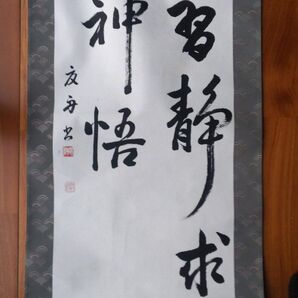 習静求
神悟
友舟书